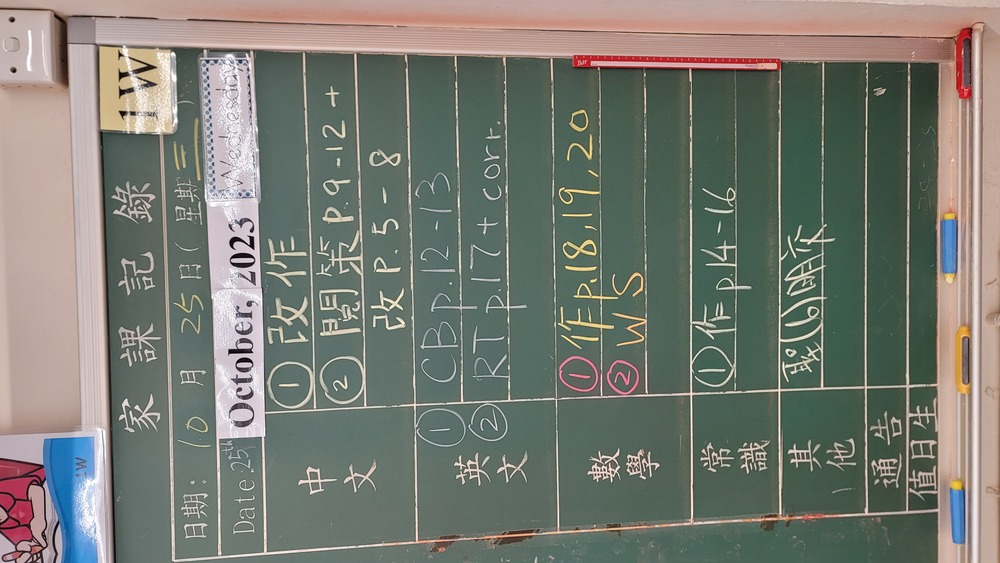 1W
家課記錄
日期： 10 月 25 日 ( 星期 三 )
Date: 25th October, 2023 Wednesday
中文 ① 改作
② 閱策 p.9-12 +
改 p.5-8
英文 ① CB p.12-13
② RT p.17 + corr.
數學 ① 作 p.18, 19, 20
② WS
常識 ① 作 p.14-16
其他
通告
值日生